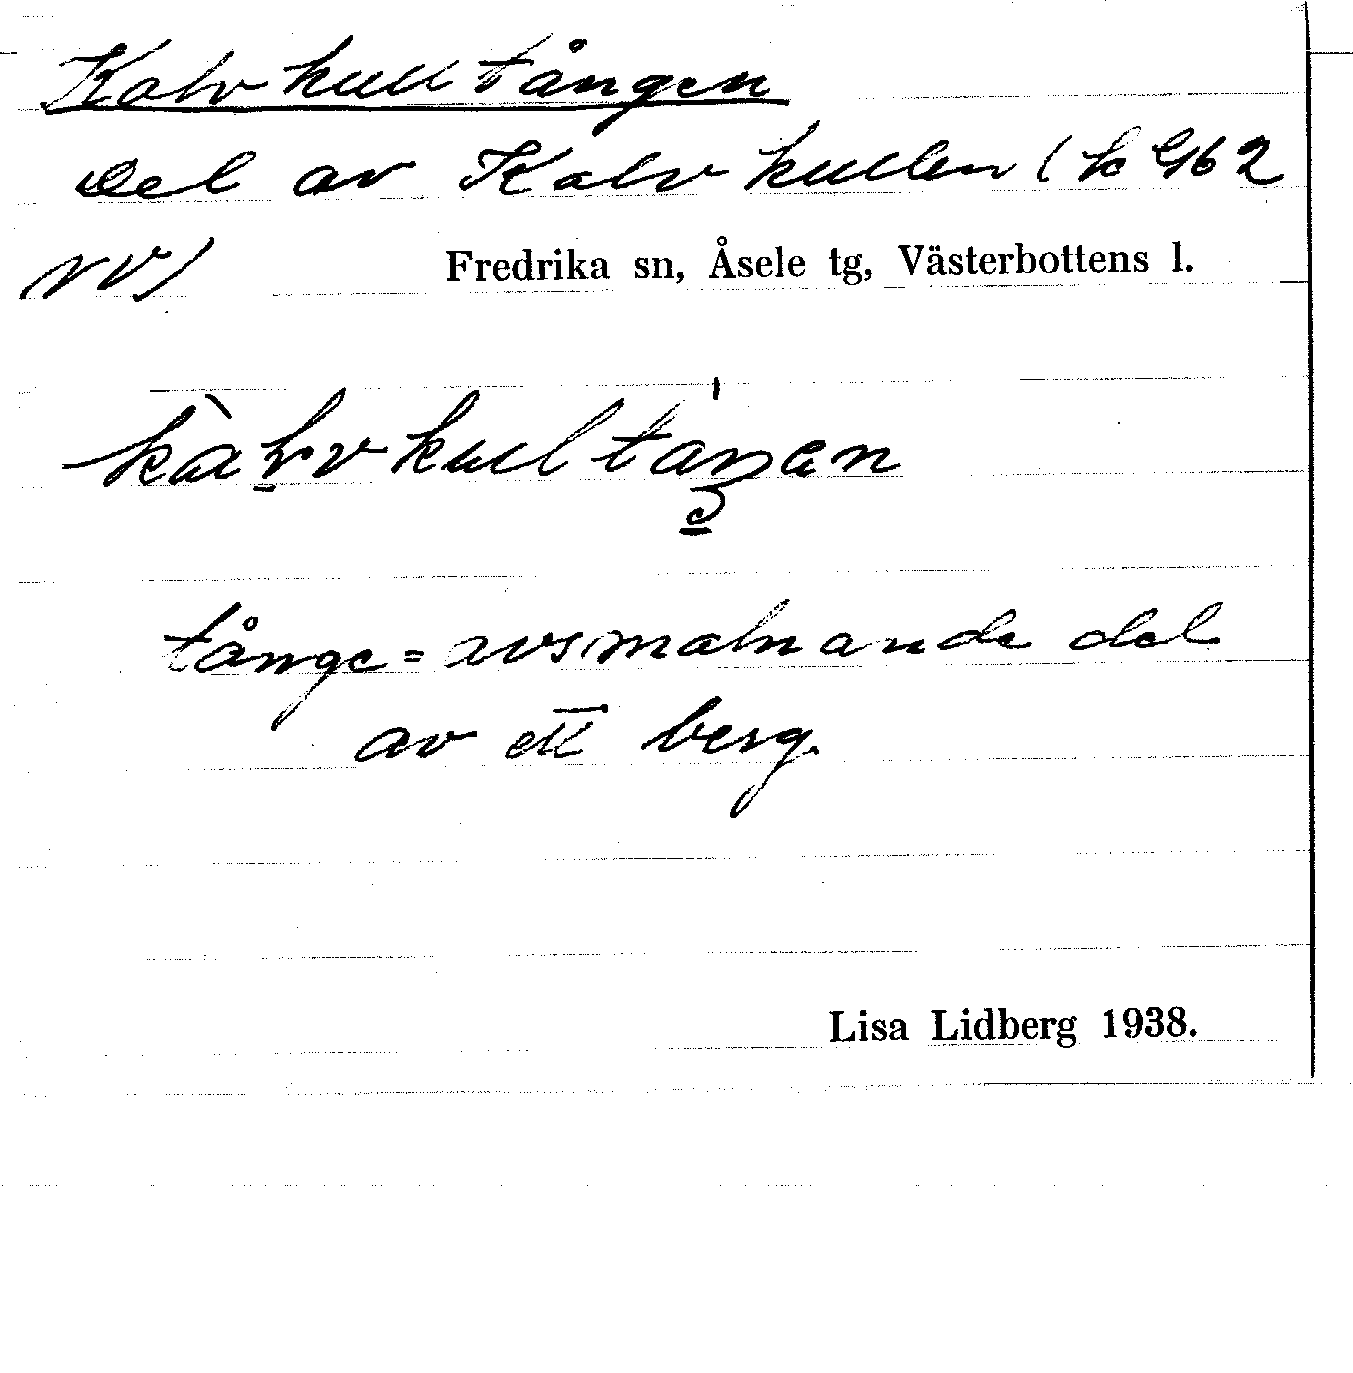 Kalvkulltången
Del av Kalvkullen (h 962
NV)
Fredrika sn, Åsele tg, Västerbottens l.
tånge = avsmalnande del
av ett berg.
Lisa Lidberg 1938.